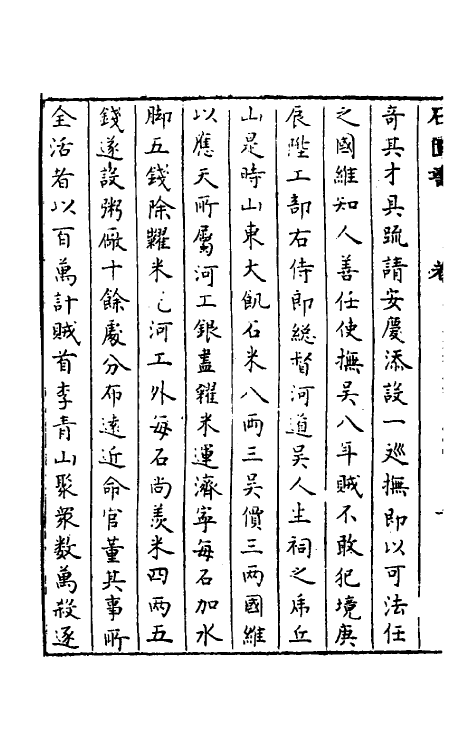 石匱書　卷
奇其才具疏請安慶添設一巡撫即以可法任
之國維知人善任使撫吳八年賊不敢犯境庚
辰陞工部右侍郎總督河道吳人生祠之虎丘
山是時山東大飢石米八兩三吳價三兩國維
以應天所屬河工銀盡糴米運濟寧每石加水
脚五錢除糴米之河工外每石尚羨米四兩五
錢遂設粥廠十餘處分布遠近命官董其事所
全活者以百萬計賊首李青山聚衆數萬殺逐